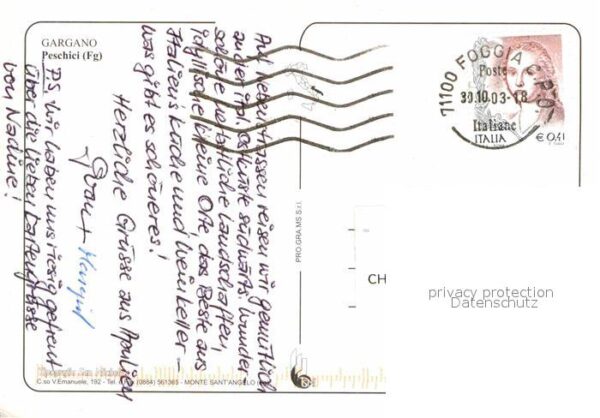 GARGANO
Peschici (Fg)
Auf Nebenstrassen reisen wir gemütlich
an der ital. Ostküste südwärts. Wunder-
schöne herbstliche Landschaften,
idyllische kleine Orte das Beste aus
Italiens Küche und Weinkeller –
was gibt es schöneres!
Herzliche Grüsse aus Apulien
PS. Wir haben uns riesig gefreut
über die lieben Kartengrüsse
von Nadine!
PRO.GRA.MS S.r.l.
C.so V.Emanuele, 192 - Tel. (0884) 561365 - MONTE SANT'ANGELO
71100 FOGGIA C.P.O.
30.10.03-18
Poste
Italiane
ITALIA
€ 0,41
CH
privacy protection
Datenschutz